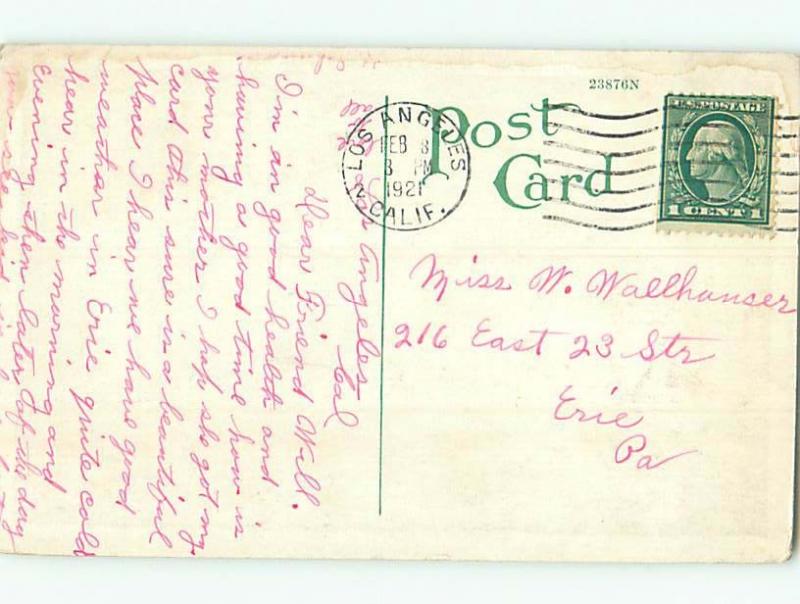 23876N
Post
Card
U.S. POSTAGE
1 CENT 1
LOS ANGELES
FEB 8
8 PM
1921
CALIF.
Miss W. Wallhauser
216 East 23 Str
Erie
Pa
Los Angeles
Cal
Dear Friend Will.
I'm in good health and
having a good time how is
your mother I hop she got my
card this sure is a beautiful
place I hear we have good
weathar in Erie quite cold
hear in the morning and
evening then later of the day